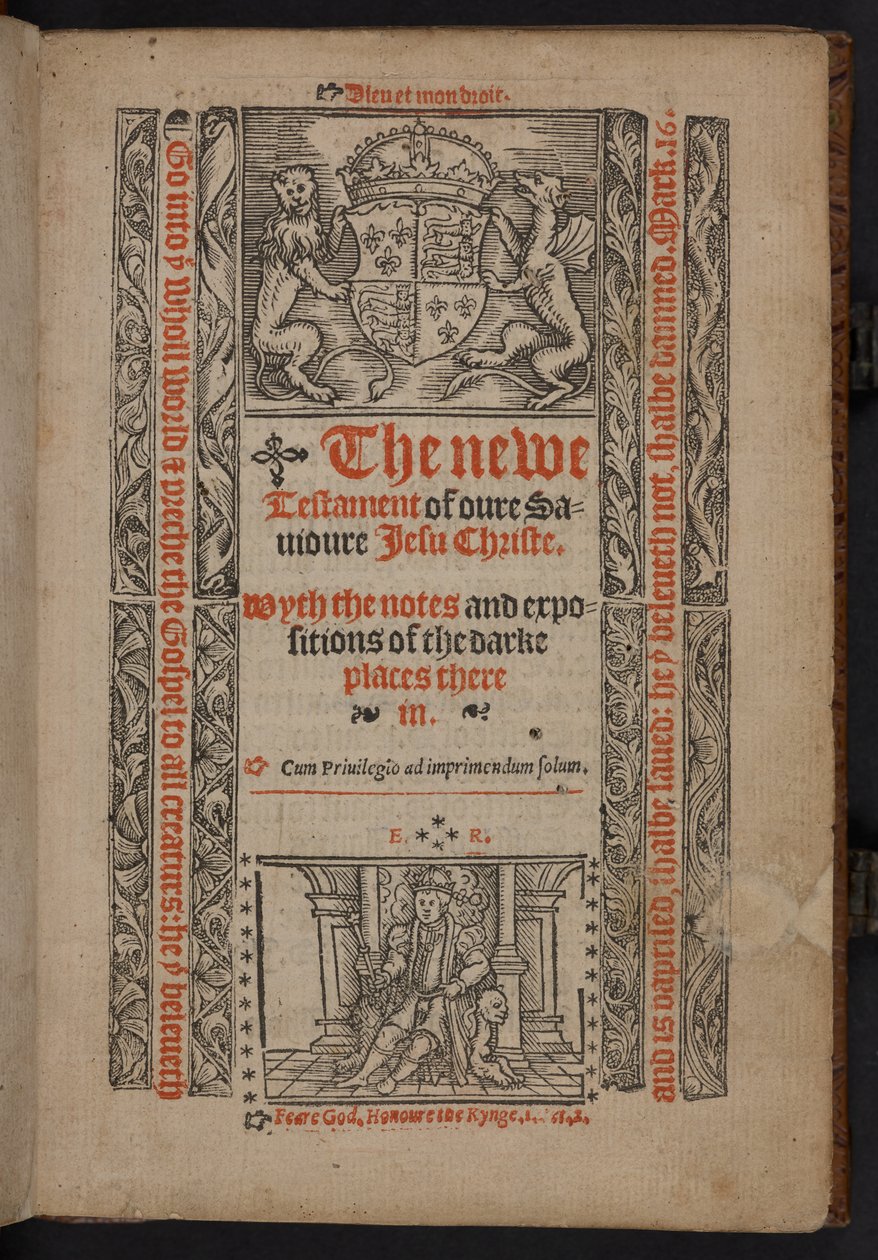 ☞ Dieu et mon droit.
¶ Go into yͤ wholl world & preche the Gospel to all creatures: he yͭ beleueth
and is baptised, shalbe saued: he yͭ beleueth not, shalbe damned. Mark. 16.
The newe
Testament of oure Sa=
uioure Jesu Christe.
Wyth the notes and expo=
sitions of the darke
places there
in.
☞ Cum Priuilegio ad imprimendum solum.
E. R.
☞ Feare God, Honoure the Kynge, 1.